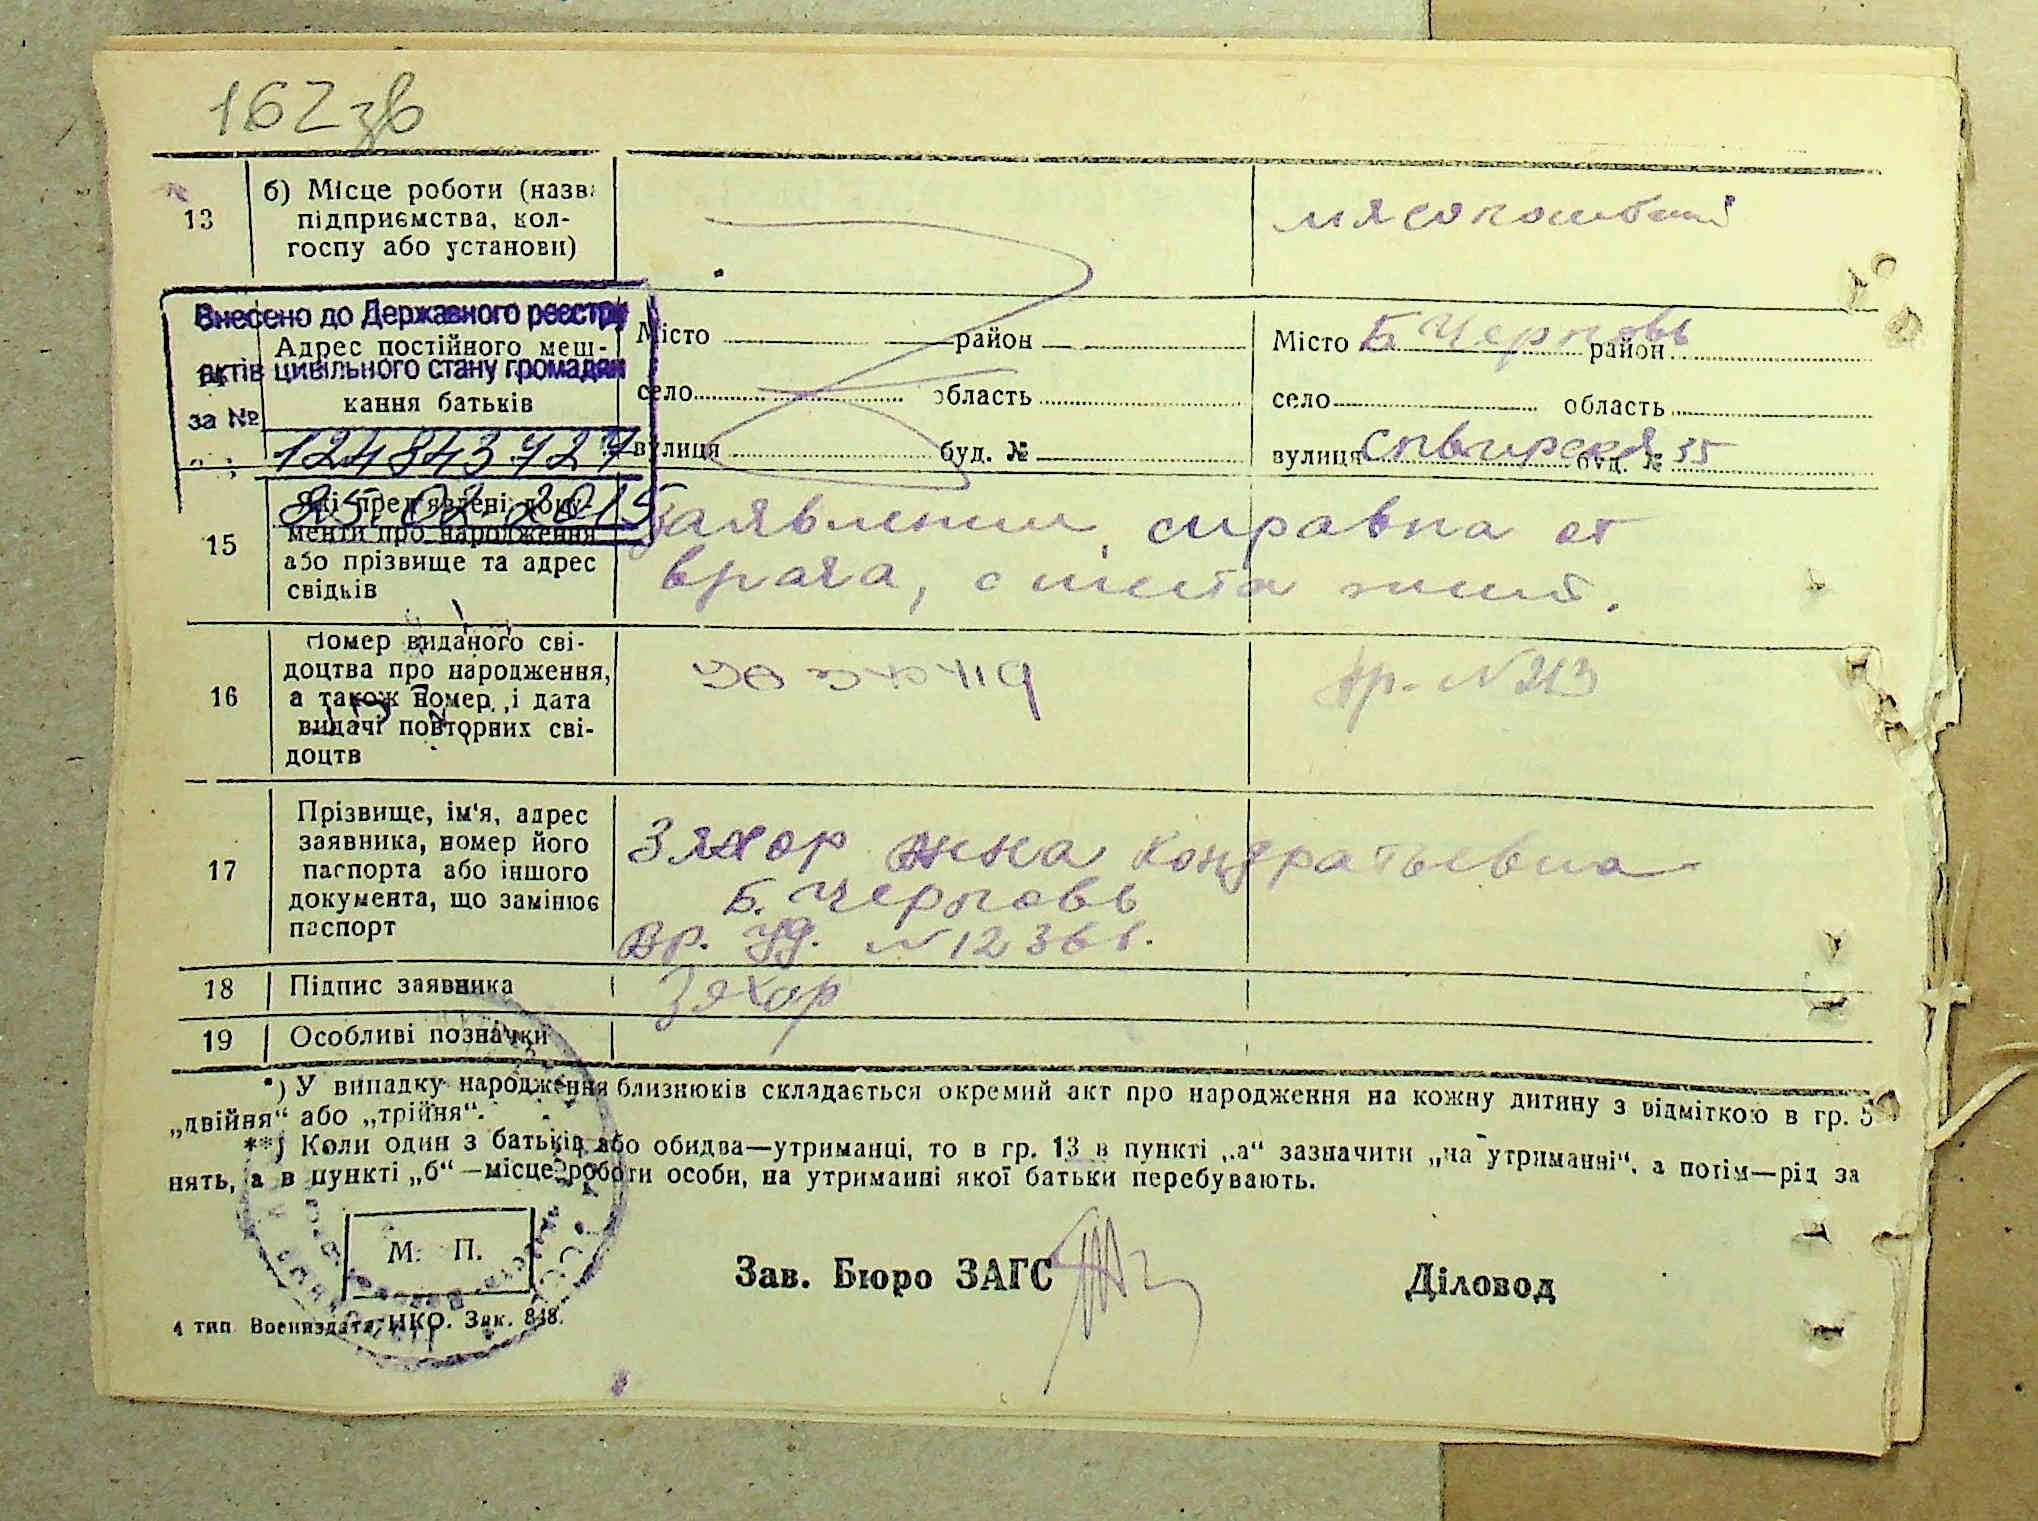 162 зв
13
б) Місце роботи (назва
підприємства, кол-
госпу або установи)
мясокомбинат
Внесено до Державного реєстру
актів цивільного стану громадян
за №
124843727
25.02.2015
Адрес постійного меш-
кання батьків
Місто район
село область
вулиця буд. №
Місто Б Церковь район
село область
вулиця Сквирская буд. № 35
15
Які пред'явлені доку-
менти про народження
або прізвище та адрес
свідків
Заявления, справка от
врача, с места жит.
16
Номер виданого сві-
доцтва про народження,
а також номер, і дата
видачі повторних сві-
доцтв
17
Прізвище, ім'я, адрес
заявника, номер його
паспорта або іншого
документа, що замінює
паспорт
Зяхор Анна Кондратьевна
Б. Церковь
Вр. уд. №
18
Підпис заявника
Зяхор
19
Особливі позначки
*) У випадку народження близнюків складається окремий акт про народження на кожну дитину з відміткою в гр. 5
„двійня“ або „трійня“.
**) Коли один з батьків або обидва—утриманці, то в гр. 13 в пункті „а“ зазначити „на утриманні“, а потім—рід за
нять, а в пункті „б“—місце роботи особи, на утриманні якої батьки перебувають.
М. П.
Зав. Бюро ЗАГС
Діловод
4 тип. Воениздата НКО. Зак. 848.